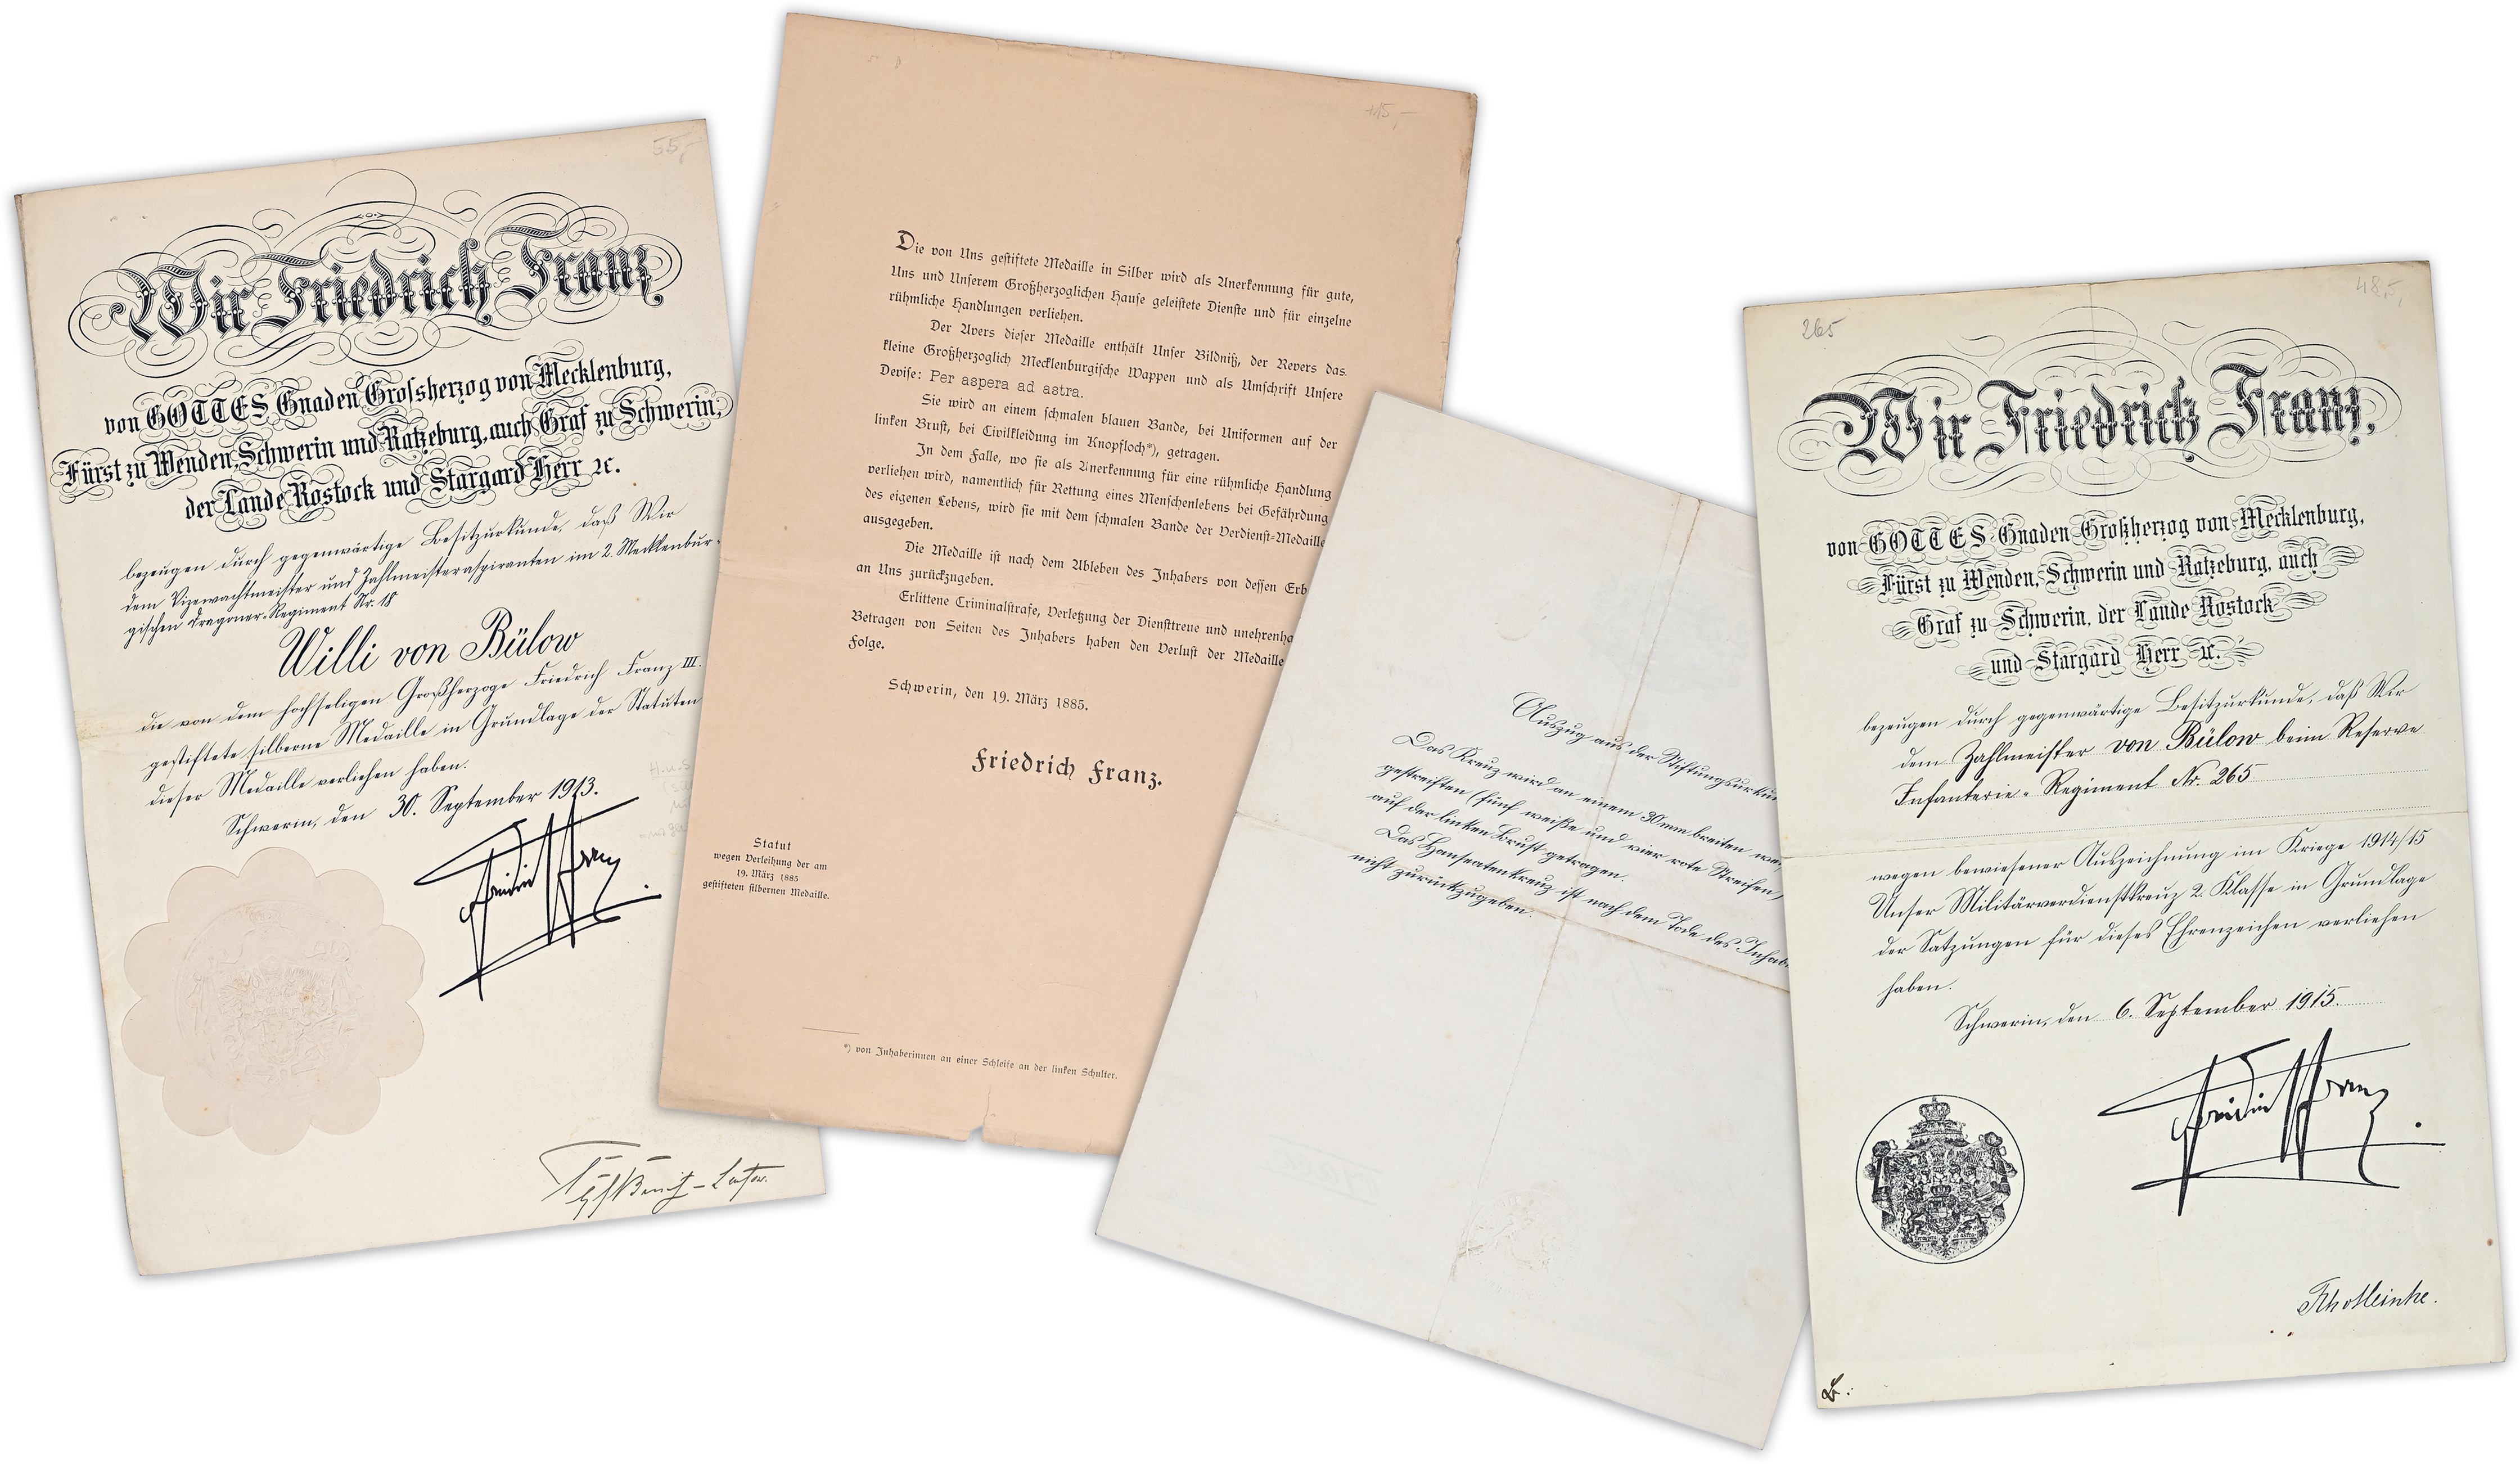 55,-
Wir Friedrich Franz
von GOTTES Gnaden Grossherzog von Mecklenburg,
Fürst zu Wenden, Schwerin und Ratzeburg, auch Graf zu Schwerin,
der Lande Rostock und Stargard Herr ꝛc.
bezeugen durch gegenwärtige Besitzurkunde, daß Wir
dem Vizewachtmeister und Zahlmeisteraspiranten im 2. Mecklenbur-
gischen Dragoner-Regiment Nr. 18
Willi von Bülow
die von dem hochseligen Großherzoge Friedrich Franz III.
gestiftete silberne Medaille in Grundlage der Statuten
dieser Medaille verliehen haben.
Schwerin, den 30. September 1913.
Friedrich Franz
Die von Uns gestiftete Medaille in Silber wird als Anerkennung für gute,
Uns und Unserem Großherzoglichen Hause geleistete Dienste und für einzelne
rühmliche Handlungen verliehen.
Der Avers dieser Medaille enthält Unser Bildniß, der Revers das
kleine Großherzoglich Mecklenburgische Wappen und als Umschrift Unsere
Devise: Per aspera ad astra.
Sie wird an einem schmalen blauen Bande, bei Uniformen auf der
linken Brust, bei Civilkleidung im Knopfloch*), getragen.
In dem Falle, wo sie als Anerkennung für eine rühmliche Handlung
verliehen wird, namentlich für Rettung eines Menschenlebens bei Gefährdung
des eigenen Lebens, wird sie mit dem schmalen Bande der Verdienst-Medaille
ausgegeben.
Die Medaille ist nach dem Ableben des Inhabers von dessen Erb
an Uns zurückzugeben.
Erlittene Criminalstrafe, Verletzung der Diensttreue und unehrenha
Betragen von Seiten des Inhabers haben den Verlust der Medaille
Folge.
Schwerin, den 19. März 1885.
Friedrich Franz.
Statut
wegen Verleihung der am
19. März 1885
gestifteten silbernen Medaille.
*) von Inhaberinnen an einer Schleife an der linken Schulter.
Auszug aus der Stiftungsurkun
Das Kreuz wird an einem 30mm breiten we
gestreiften (fünf weiße und vier rote Streifen)
auf der linken Brust getragen.
Das Hanseatenkreuz ist nach dem Tode des Inhab
nicht zurückzugeben.
265
48,-
Wir Friedrich Franz,
von GOTTES Gnaden Großherzog von Mecklenburg,
Fürst zu Wenden, Schwerin und Ratzeburg, auch
Graf zu Schwerin, der Lande Rostock
und Stargard Herr ꝛc.
bezeugen durch gegenwärtige Besitzurkunde, daß Wir
dem Zahlmeister von Bülow beim Reserve
Infanterie-Regiment Nr. 265
wegen bewiesener Auszeichnung im Kriege 1914/15
Unser Militärverdienstkreuz 2. Klasse in Grundlage
der Satzungen für dieses Ehrenzeichen verliehen
haben.
Schwerin, den 6. September 1915.
Friedrich Franz